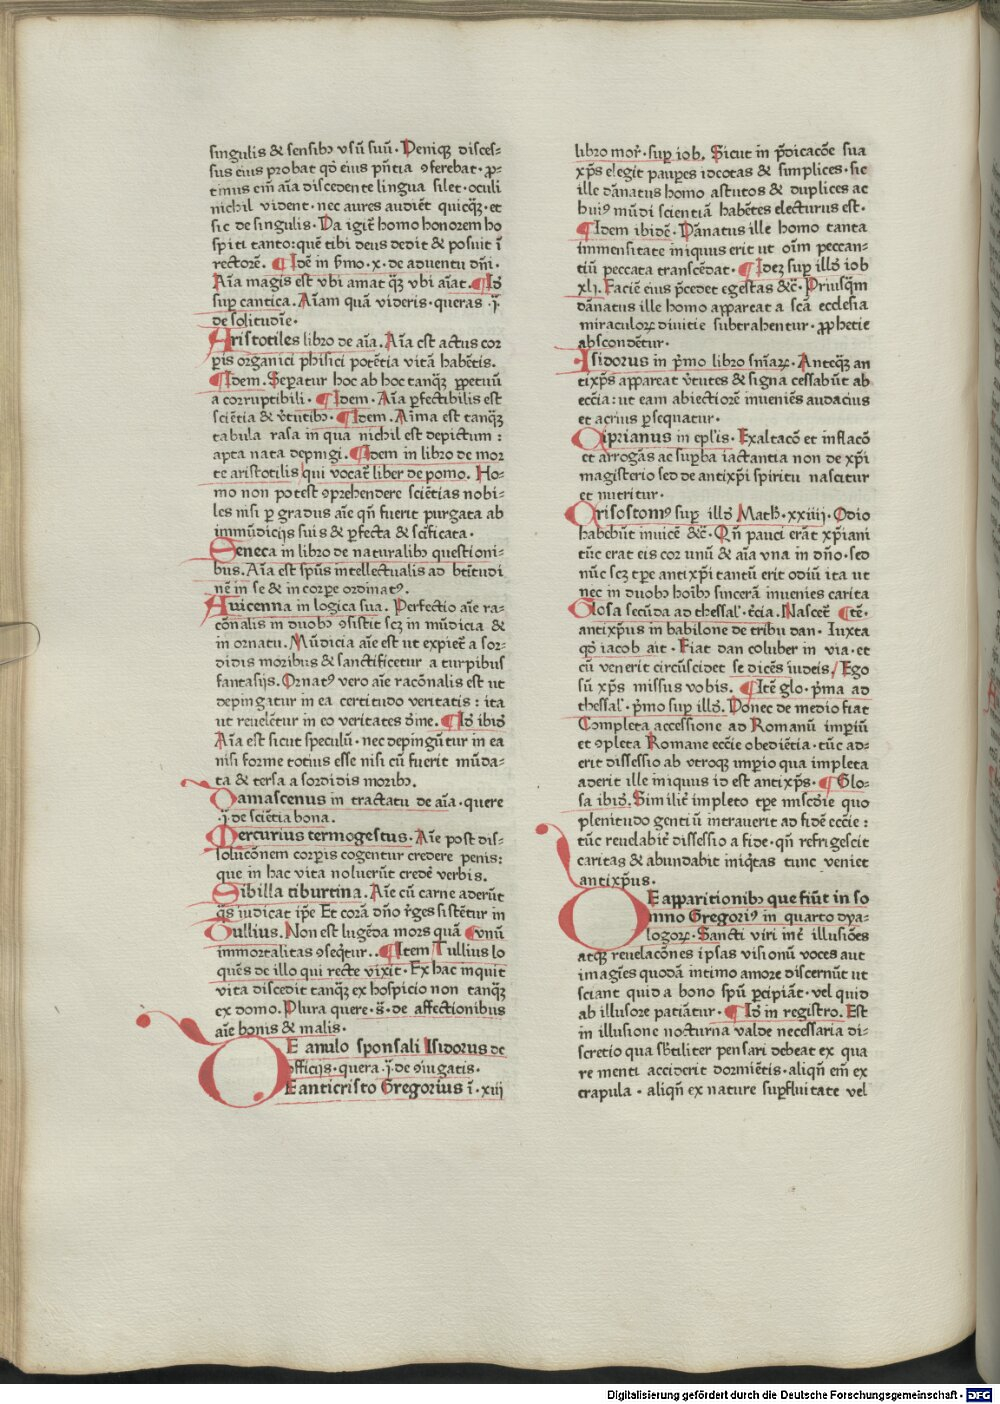 singulis & sensibꝫ vsū suū. Deniqꝫ disces-
sus eius probat qđ eius p̄ntia ɔferebat. ꝓ-
timus em̄ aīa discedente lingua silet. oculi
nichil vident. nec aures audiēt quicq̄ꝫ. et
sic de singulis. Da igit̄ homo honorem ho
spiti tanto: quē tibi deus dedit & posuit ī
rectorē. ¶Idē in p̄mo .x. de aduentu dn̄i.
Aīa magis est vbi amat q̄ꝫ vbi aīat. ¶Iđ
suꝑ cantica. Aīam quā videris. queras .j̄.
de solitudīe.
Aristotiles libro de aīa. Aīa est actus cor
ꝑis organici phisici potētia vitā habētis.
¶Idem. Seꝑatur hoc ab hoc tanqꝫ ꝑpetuū
a corruptibili. ¶Idem. Aīa ꝑfectibilis est
sciētia & v̄tutibꝫ. ¶Idem. Aīma est tanqꝫ
tabula rasa in qua nichil est depictum:
apta nata depingi. ¶Idem in libro de mor
te aristotilis qui vocat̄ liber de pomo. Ho-
mo non potest ɔprehendere sciētias nobi-
les nisi ꝑ gradus aīe qn̄ fuerit purgata ab
immūdicijs suis & ꝑfecta & sc̄ificata.
Seneca in libro de naturalibꝫ questioni-
bus. Aīa est spūs intellectualis ad btītudi
nē in se & in corꝑe ordinatꝰ.
Auicenna in logica sua. Perfectio aīe ra-
cōnalis in duobꝫ ɔsistit scꝫ in mūdicia &
in ornatu. Mūdicia aīe est ut expiet̄ a sor-
didis moribus & sanctificetur a turpibus
fantasijs. Ornatꝰ vero aīe racōnalis est ut
depingatur in ea certitudo veritatis: ita
ut reuelētur in eo veritates dīne. ¶Iđ ibiđ
Aīa est sicut speculū. nec depingūtur in ea
nisi forme totius esse nisi cū fuerit mūda-
ta & tersa a sordidis moribꝫ.
Damascenus in tractatu de aīa. quere
.j̄. de sciētia bona.
Mercurius termogestus. Aīe post dis-
solucōnem corꝑis cogentur credere penis:
que in hac vita noluerūt credē verbis.
Sibilla tiburtina. Aīe cū carne aderūt
q̄s iudicat ip̄e Et corā dn̄o r̄ges sistētur in
Tullius. Non est lugēda mors quā ¶vnū
immortalitas ɔseq̄tur.. ¶Item Tullius lo
quēs de illo qui recte vixit. Ex hac inquit
vita discedit tanqꝫ ex hospicio non tanqꝫ
ex domo. Plura quere .s̄. de affectionibus
aīe bonis & malis.
DE anulo sponsali Isidorus de
officijs. quera .j̄. de ɔiugatis.
DE anticristo Gregorius ī .xiij
libro mor̄. suꝑ iob. Sicut in p̄dicacōe sua
xp̄s elegit pauꝑes idcotas & simplices. sic
ille dānatus homo astutos & duplices ac
huiꝰ mūdi scientiā habētes electurus est.
¶Idem ibidē. Dānatus ille homo tanta
immensitate iniquus erit ut oīm peccan-
tiū peccata transcēdat. ¶Ideꝫ suꝑ illđ iob
xlj. Faciē eius p̄cedet egestas &c̄. Priusq̄m
dānatus ille homo appareat a scā ecclesia
miraculoꝝ diuitie subtrahentur. ꝓphetie
abscondētur.
Isidorus in p̄mo libro sn̄iaꝝ. Anteq̄ꝫ an
tixp̄s appareat v̄tutes & signa cessabūt ab
ecc̄ia: ut eam abiectiorē inueniēs audacius
et acrius ꝑsequatur.
Ciprianus in ep̄lis. Exaltacō et inflacō
et arrogās ac suꝑba iactantia non de xp̄i
magisterio sed de antixp̄i spiritu nascitur
et nutritur.
Crisostomꝰ suꝑ illđ Math̄. xxiiij. Odio
habebūt inuicē &c̄. Qn̄ pauci erāt xp̄iani
tūc erat eis cor unū & aīa vna in dn̄o. sed
nūc scꝫ tꝑe antixp̄i tantū erit odiū ita ut
nec in duobꝫ hoībꝫ sincerā inuenies carita
Glosa secūda ad thessal̄. ec̄cia. Nascet̄ ¶tē.
antixp̄us in babilone de tribu dan. Iuxta
qđ iacob ait. Fiat dan coluber in via. et
cū venerit circūscidet se dicēs iudeis. Ego
sū xp̄s missus vobis. ¶Itē glo. p̄ma ad
thessal̄. p̄mo suꝑ illđ. Donec de medio fiat
Completa accessione ad Romanū imꝑiū
et ɔpleta Romane ecc̄ie obediētia. tūc ad-
erit dissessio ab vtroqꝫ imꝑio qua impleta
aderit ille iniquus id est antixp̄s. ¶Glo-
sa ibiđ. Similit̄ impleto tꝑe misc̄die quo
plenitudo gentiū intrauerit ad fidē ecc̄ie:
tūc reuelabit̄ dissessio a fide. qn̄ refrigescit
caritas & abundabit iniq̄tas tunc veniet
antixp̄us.
DE apparitionibꝫ que fiūt in so
mno Gregoriꝰ in quarto dya-
logoꝝ. Sancti viri int̄ illusiōes
atqꝫ reuelacōnes ipsas visionū voces aut
imagīes quodā intimo amore discernūt ut
sciant quid a bono spū ꝑcipiāt. vel quid
ab illusore patiātur. ¶Iđ in registro. Est
in illusione nocturna valde necessaria di-
scretio qua sbtiliter pensari debeat ex qua
re menti acciderit dormiētis. aliqn̄ em̄ ex
crapula. aliqn̄ ex nature suꝑfluitate vel
Digitalisierung gefördert durch die Deutsche Forschungsgemeinschaft - DFG